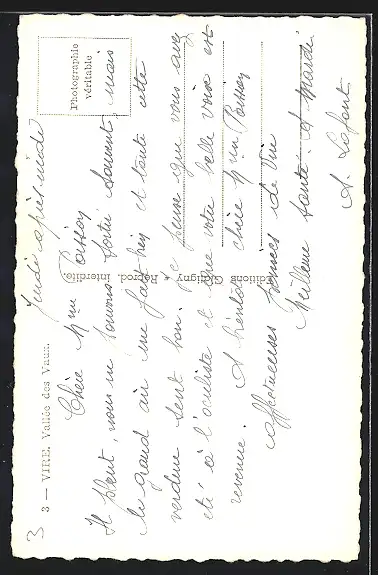 Photographie
véritable
3 — VIRE. Vallée des Vaux.
Editions Reprod. interdite.
3
Jeudi après-midi
Chère Mme Poisson
Il pleut, nous ne pouvons sortir souvent, mais
le grand air me fait bien et toute cette
verdure sent bon. Je pense que vous avez
été à l'oculiste et que votre belle vue est
revenue. A bientôt chère Mme Poisson
affectueuses pensées de Vire
Meilleure santé à mardi.
A. Lafont